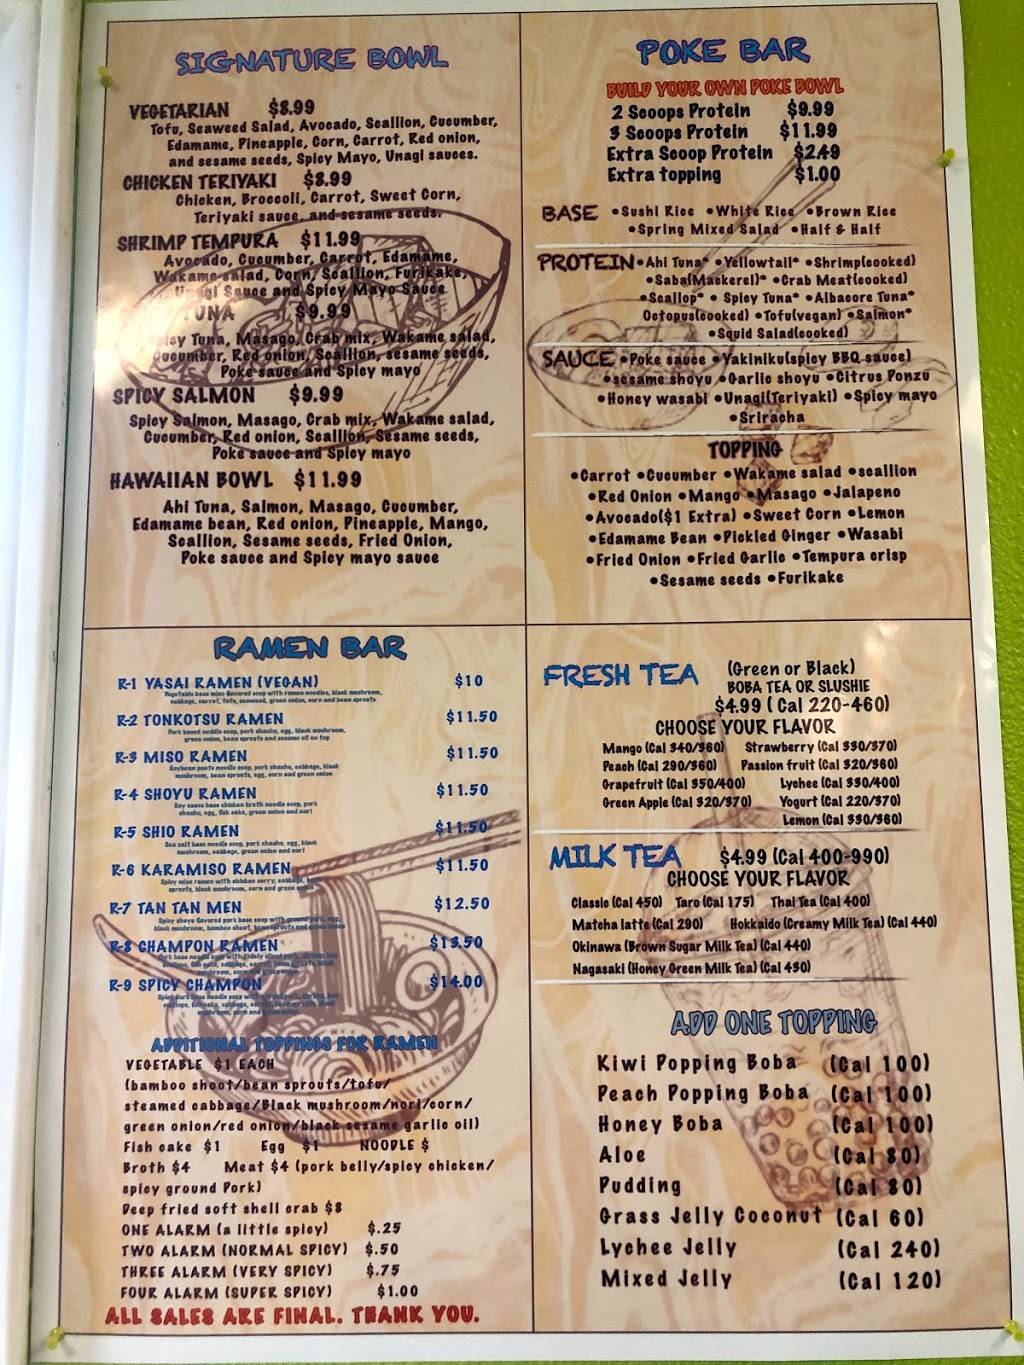 SIGNATURE BOWL
VEGETARIAN $8.99
Tofu, Seaweed Salad, Avocado, Scallion, Cucumber,
Edamame, Pineapple, Corn, Carrot, Red onion,
and sesame seeds, Spicy Mayo, Unagi sauces.
CHICKEN TERIYAKI $8.99
Chicken, Broccoli, Carrot, Sweet Corn,
Teriyaki sauce, and sesame seeds.
SHRIMP TEMPURA $11.99
Avocado, Cucumber, Carrot, Edamame,
Wakame salad, Corn, Scallion, Furikake,
Unagi Sauce and Spicy Mayo Sauce
TUNA $9.99
Spicy Tuna, Masago, Crab mix, Wakame salad,
Cucumber, Red onion, Scallion, sesame seeds,
Poke sauce and Spicy mayo
SPICY SALMON $9.99
Spicy Salmon, Masago, Crab mix, Wakame salad,
Cucumber, Red onion, Scallion, Sesame seeds,
Poke sauce and Spicy mayo
HAWAIIAN BOWL $11.99
Ahi Tuna, Salmon, Masago, Cucumber,
Edamame bean, Red onion, Pineapple, Mango,
Scallion, Sesame seeds, Fried Onion,
Poke sauce and Spicy mayo sauce
POKE BAR
BUILD YOUR OWN POKE BOWL
2 Scoops Protein $9.99
3 Scoops Protein $11.99
Extra Scoop Protein $2.49
Extra topping $1.00
BASE •Sushi Rice •White Rice •Brown Rice
•Spring Mixed Salad •Half & Half
PROTEIN •Ahi Tuna* •Yellowtail* •Shrimp(cooked)
•Saba(Mackerel)* •Crab Meat(cooked)
•Scallop* • Spicy Tuna* •Albacore Tuna*
Octopus(cooked) •Tofu(vegan) •Salmon*
•Squid Salad(cooked)
SAUCE •Poke sauce •Yakiniku(spicy BBQ sauce)
•sesame shoyu •Garlic shoyu •Citrus Ponzu
•Honey wasabi •Unagi(Teriyaki) •Spicy mayo
•Sriracha
TOPPING
•Carrot •Cucumber •Wakame salad •scallion
•Red Onion •Mango •Masago •Jalapeno
•Avocado($1 Extra) •Sweet Corn •Lemon
•Edamame Bean •Pickled Ginger •Wasabi
•Fried Onion •Fried Garlic •Tempura crisp
•Sesame seeds •Furikake
RAMEN BAR
R-1 YASAI RAMEN (VEGAN) $10
Vegetable base miso flavored soup with ramen noodles, black mushroom,
cabbage, carrot, tofu, seaweed, green onion, corn and bean sprouts
R-2 TONKOTSU RAMEN $11.50
Pork based noddle soup, pork chashu, egg, black mushroom,
green onion, bean sprouts and sesame oil on top
R-3 MISO RAMEN $11.50
Soybean paste noodle soup, pork chashu, cabbage, black
mushroom, bean sprouts, egg, corn and green onion
R-4 SHOYU RAMEN $11.50
Soy sauce base chicken broth noodle soup, pork
chashu, egg, fish cake, green onion and nori
R-5 SHIO RAMEN $11.50
Sea salt base noodle soup, pork chashu, egg, black
mushroom, cabbage, green onion and nori
R-6 KARAMISO RAMEN $11.50
Spicy miso ramen with chicken curry, cabbage,
sprouts, black mushroom, corn and green onion
R-7 TAN TAN MEN $12.50
Spicy shoyu flavored pork base soup with ground pork, egg,
black mushroom, bamboo shoot, bean sprouts and green onion
R-8 CHAMPON RAMEN $13.50
R-9 SPICY CHAMPON $14.00
ADDITIONAL TOPPINGS FOR RAMEN
VEGETABLE $1 EACH
(bamboo shoot/bean sprouts/tofu/
steamed cabbage/Black mushroom/nori/corn/
green onion/red onion/black sesame garlic oil)
Fish cake $1 Egg $1 NOODLE $
Broth $4 Meat $4 (pork belly/spicy chicken/
spicy ground Pork)
Deep fried soft shell crab $8
ONE ALARM (a little spicy) $.25
TWO ALARM (NORMAL SPICY) $.50
THREE ALARM (VERY SPICY) $.75
FOUR ALARM (SUPER SPICY) $1.00
ALL SALES ARE FINAL. THANK YOU.
FRESH TEA (Green or Black)
BOBA TEA OR SLUSHIE
$4.99 ( Cal 220-460)
CHOOSE YOUR FLAVOR
Mango (Cal 340/360) Strawberry (Cal 330/370)
Peach (Cal 290/360) Passion fruit (Cal 320/360)
Grapefruit (Cal 350/400) Lychee (Cal 330/400)
Green Apple (Cal 320/370) Yogurt (Cal 220/370)
Lemon (Cal 330/360)
MILK TEA $4.99 (Cal 400-990)
CHOOSE YOUR FLAVOR
Classic (Cal 450) Taro (Cal 175) Thai Tea (Cal 400)
Matcha latte (Cal 290) Hokkaido (Creamy Milk Tea) (Cal 440)
Okinawa (Brown Sugar Milk Tea) (Cal 440)
Nagasaki (Honey Green Milk Tea) (Cal 430)
ADD ONE TOPPING
Kiwi Popping Boba (Cal 100)
Peach Popping Boba (Cal 100)
Honey Boba (Cal 100)
Aloe (Cal 80)
Pudding (Cal 80)
Grass Jelly Coconut (Cal 60)
Lychee Jelly (Cal 240)
Mixed Jelly (Cal 120)